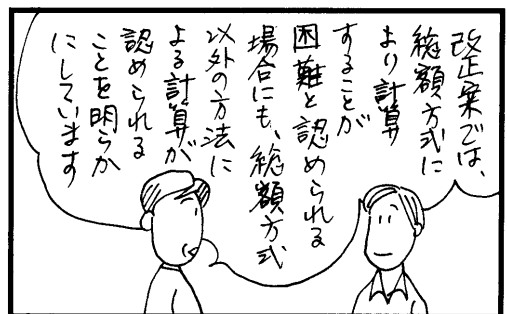 改正案では、
総額方式に
より計算
することが
困難と認められる
場合にも、総額方式
以外の方法に
よる計算が
認められる
ことを明らか
にしています